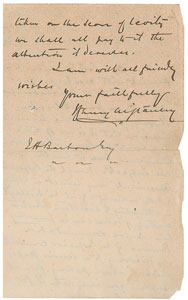 taken on the score of levity
we shall all pay to it the
attention it deserves.
I am with all friendly
wishes
Yours faithfully
Henry M Stanley